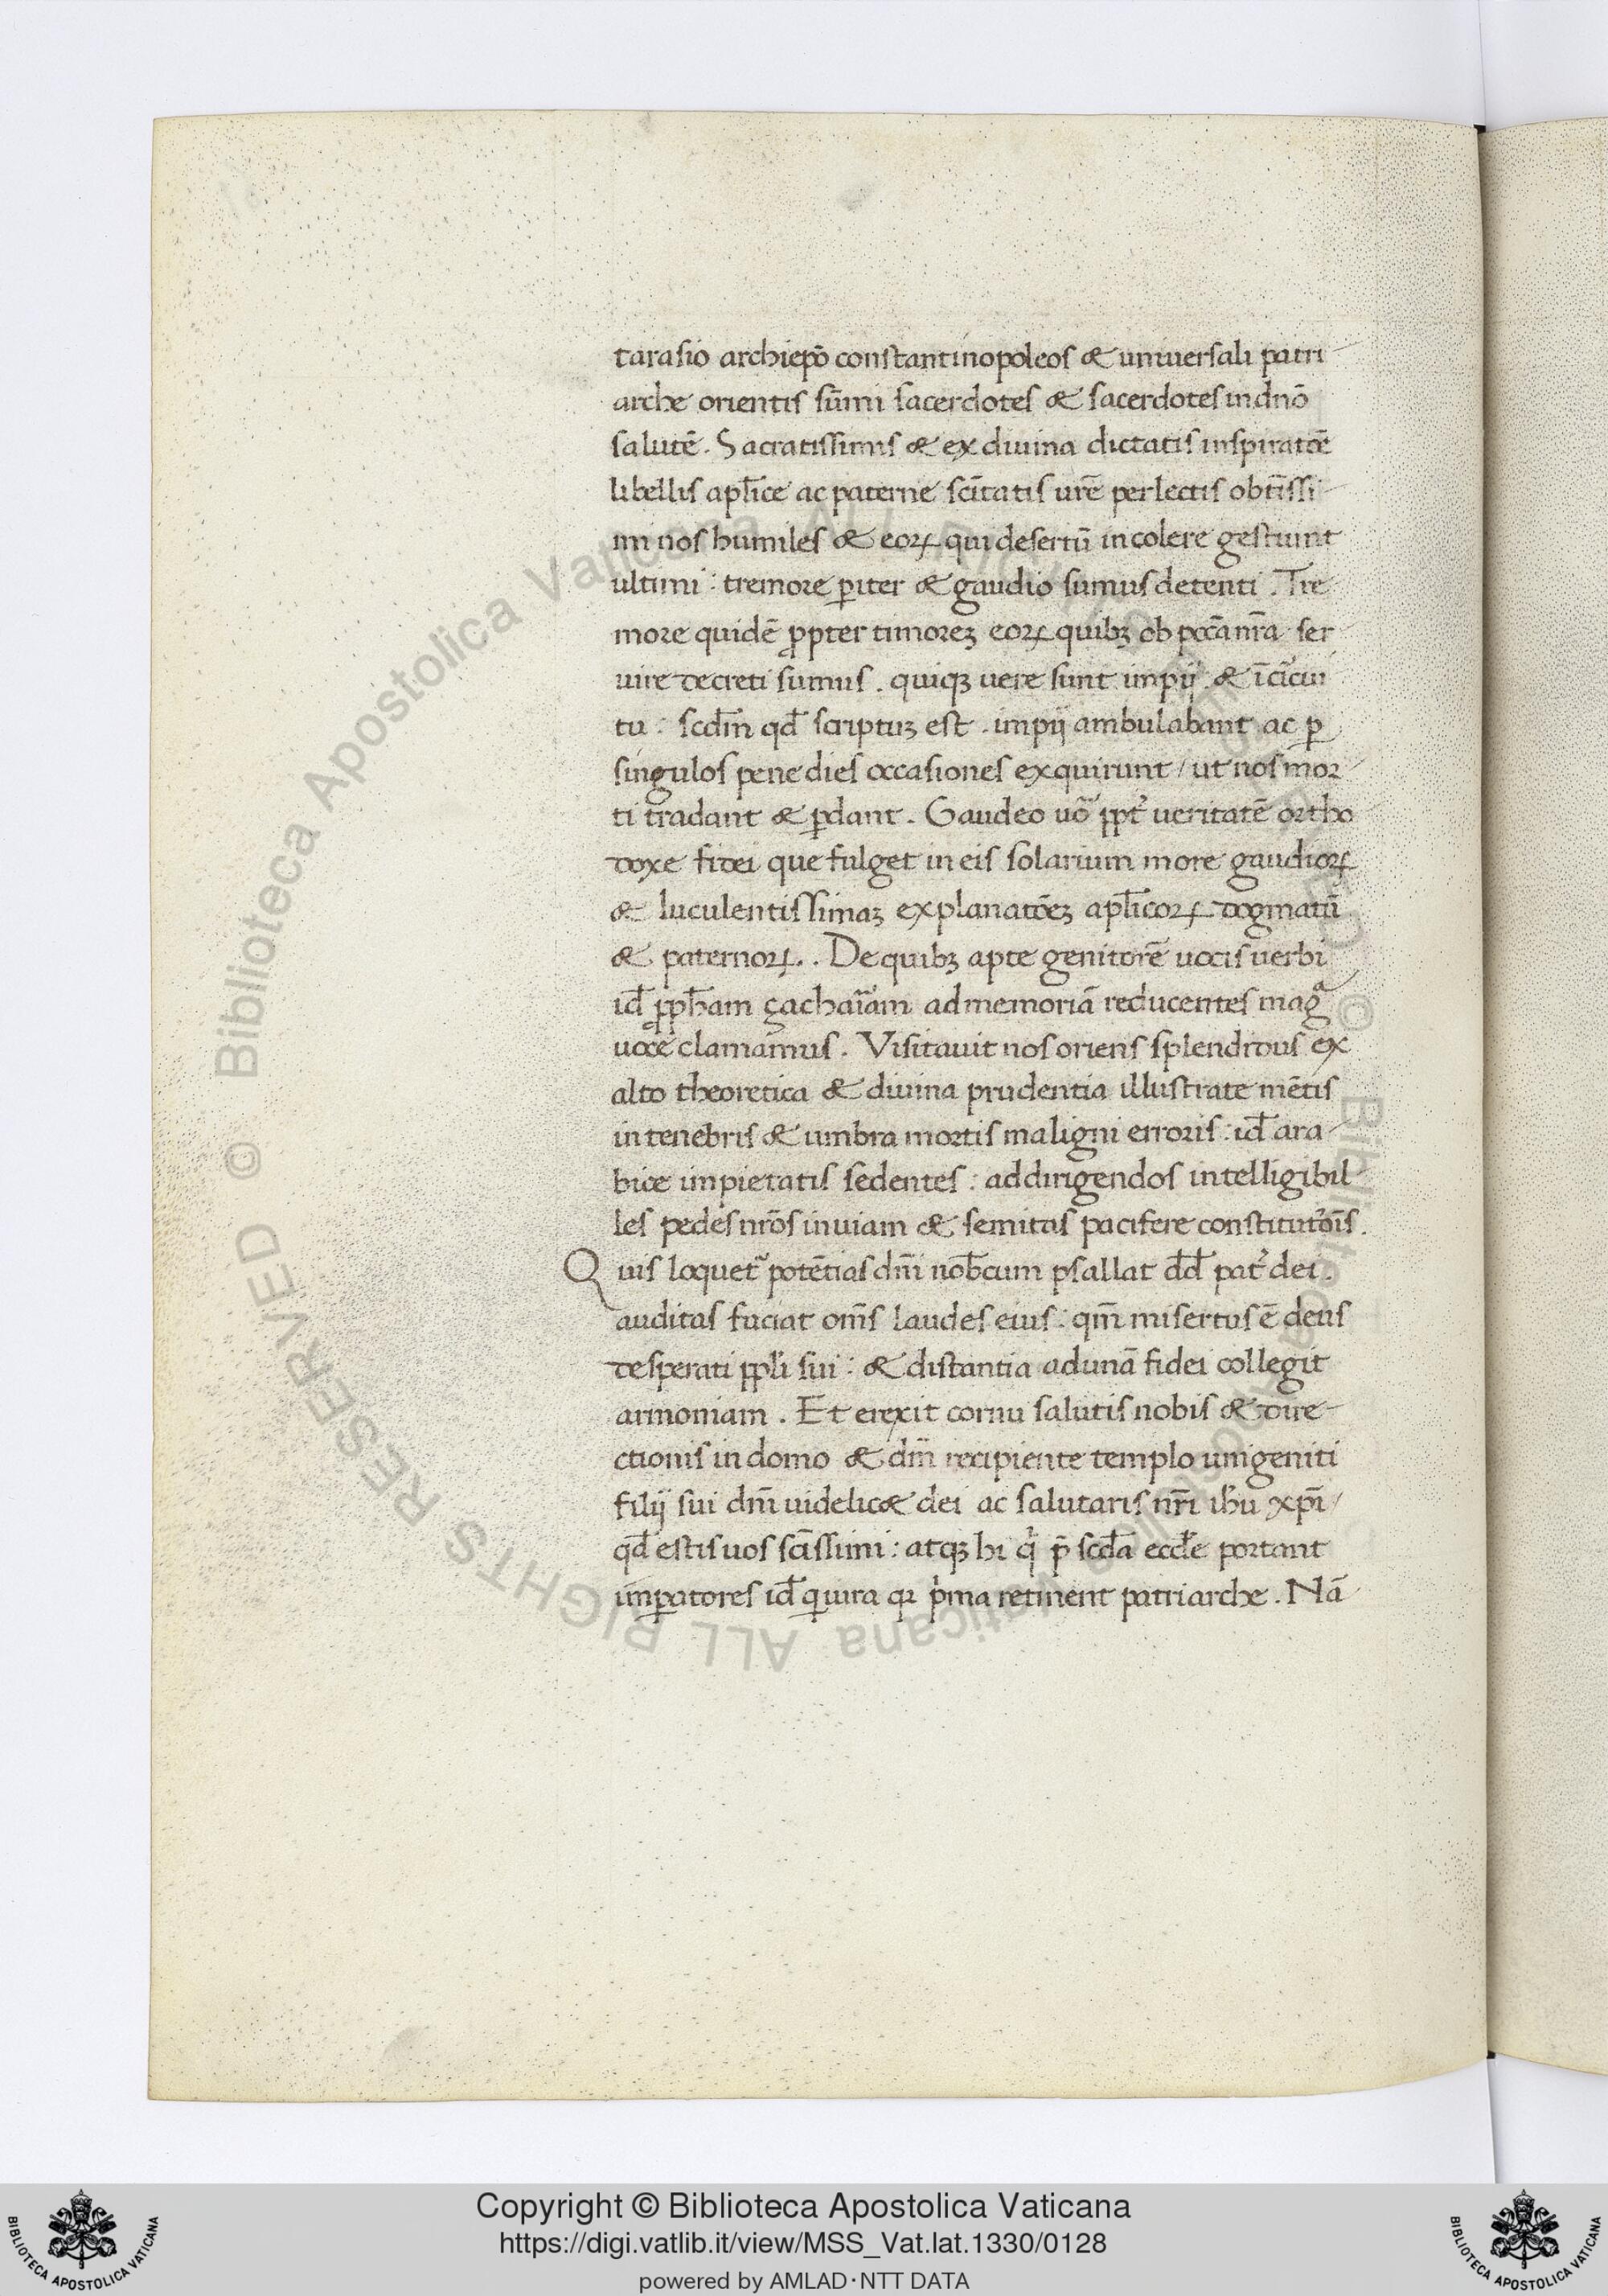 tarasio archiepō constantinopoleos & universali patri
arche orientis sūmi sacerdotes & sacerdotes in dnō
salutē. Sacratissimis & ex divina dictatis inspiratōe
libellis apl̄ice ac paterne sc̄itatis vrē perlectis obtīssi
mi nos humiles & eoꝝ qui desertū incolere gestiunt
ultimi : tremore ꝑiter & gaudio sumus detenti . Tre
more quidē ꝓpter timoreꝫ eoꝝ quibꝫ ob pccā nrā ser
vire decreti sumus . quiqꝫ vere sunt impij & ī cīrcui
tu : scd̄m qd̄ scriptuꝫ est . impij ambulabant ac ꝑ
singulos pene dies occasiones exquirunt / ut nos mor
ti tradant & ꝑdant . Gaudeo uō ꝓpt̕ veritatē ortho
doxe fidei que fulget in eis solarium more gaudioꝝ
& luculentissimaꝫ explanatōeꝫ apl̄icoꝝ dogmatū
& paternoꝝ . De quibꝫ apte genitorē vocis verbi
id̄ ꝓph̄am çachariam ad memoriā reducentes mag̃
voce clamamus . Visitavit nos oriens splendidus ex
alto theoretica & divina prudentia illustrate mētis
in tenebris & umbra mortis maligni erroris : id̄ ara
bice impietatis sedentes : ad dirigendos intelligibil
les pedes nrōs in viam & semitas pacifere constitut̕ōis .
Quis loquet̃ potētias dn̄i nob̄cum psallat dd̄ pat̕ dei .
auditas faciat om̄s laudes eius : qm̄ misertus ē deus
desperati ppl̄i sui : & distantia ad unā fidei collegit
armoniam . Et erexit cornu salutis nobis & dire
ctionis in domo & dm̄ recipiente templo unigeniti
filij sui dn̄i videlic& dei ac salutaris nr̄i ih̄u xp̄i /
qd̄ estis vos sc̄issimi : atqꝫ hi q̇ p̄ scd̄a eccl̄e portant
imꝑatores id̄ q̇ iura qꝛ ṗma retinent patriarche . Nā
Copyright © Biblioteca Apostolica Vaticana
https://digi.vatlib.it/view/MSS_Vat.lat.1330/0128
powered by AMLAD·NTT DATA